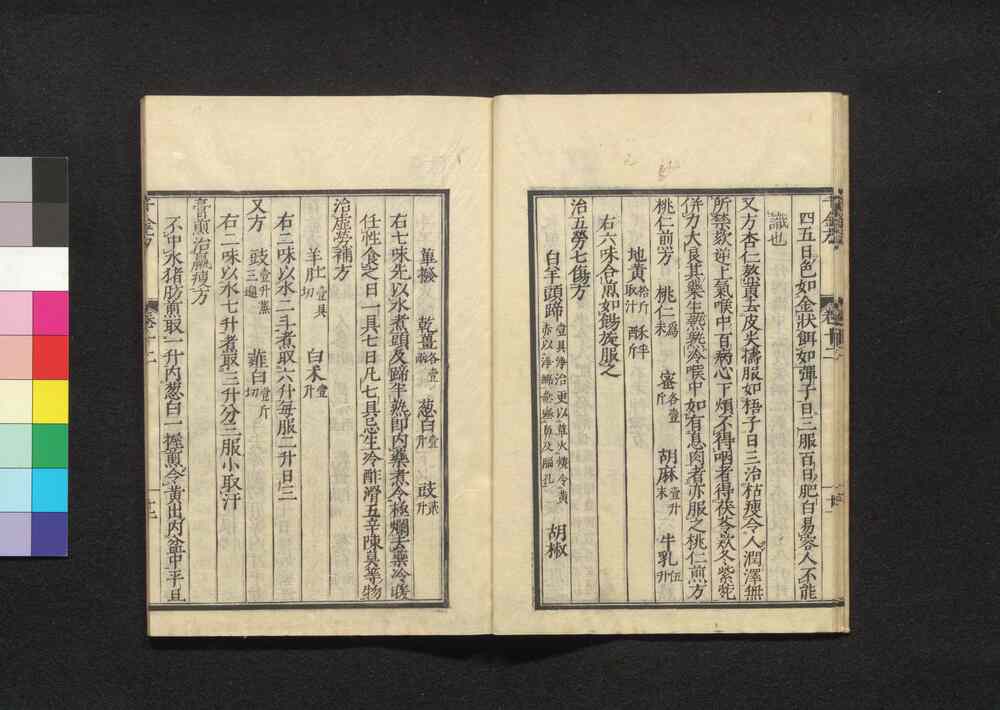 四五日色如金狀餌如彈子日三服百日肥白易容人不能
識也
又方杏仁熬黃去皮尖擣服如梧子日三治枯瘦令人潤澤無
所禁欬逆上氣喉中百病心下煩不得咽者得茯苓欵冬紫菀
併力大良其藥生熟熟冷喉中如有息肉者亦服之桃仁煎方
桃仁煎方 桃仁末 爲 蜜各壹斤 胡麻壹升末 牛乳伍升
地黃拾斤取汁 酥半斤
右六味合煎如餳旋服之
治五勞七傷方
白羊頭蹄壹具淨治更以草火燒令黃赤以淨綿急塞鼻及腦孔 胡椒
蓽撥 乾薑各壹兩 葱白壹升 豉貳升
右七味先以水煮頭及蹄半熟即內藥煮令極爛去藥冷暖
任性食之日一具七日凡七具忌生冷酢滑五辛陳臭等物
治虛勞補方
羊肚壹具切 白术壹升
右二味以水二斗煮取六升每服二升日三
又方 豉壹升蒸三遍 薤白壹斤切
右二味以水七升煮取三升分三服小取汗
膏煎治羸瘦方
不中水猪肪煎取一升內葱白一握煎令黃出內盆中平旦
千金方
卷十二
十二